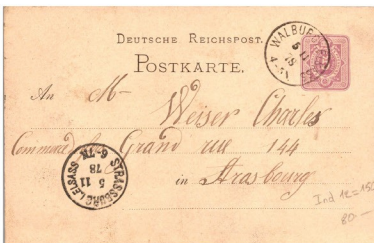 DEUTSCHE REICHSPOST.
POSTKARTE.
WALBURG
5 11
78
An M-
Weiser Charles
Grand rue 144
in Strasbourg
STRASSBURG I. ELSASS
5 11
78
6-7N
Ind 12=15
80-